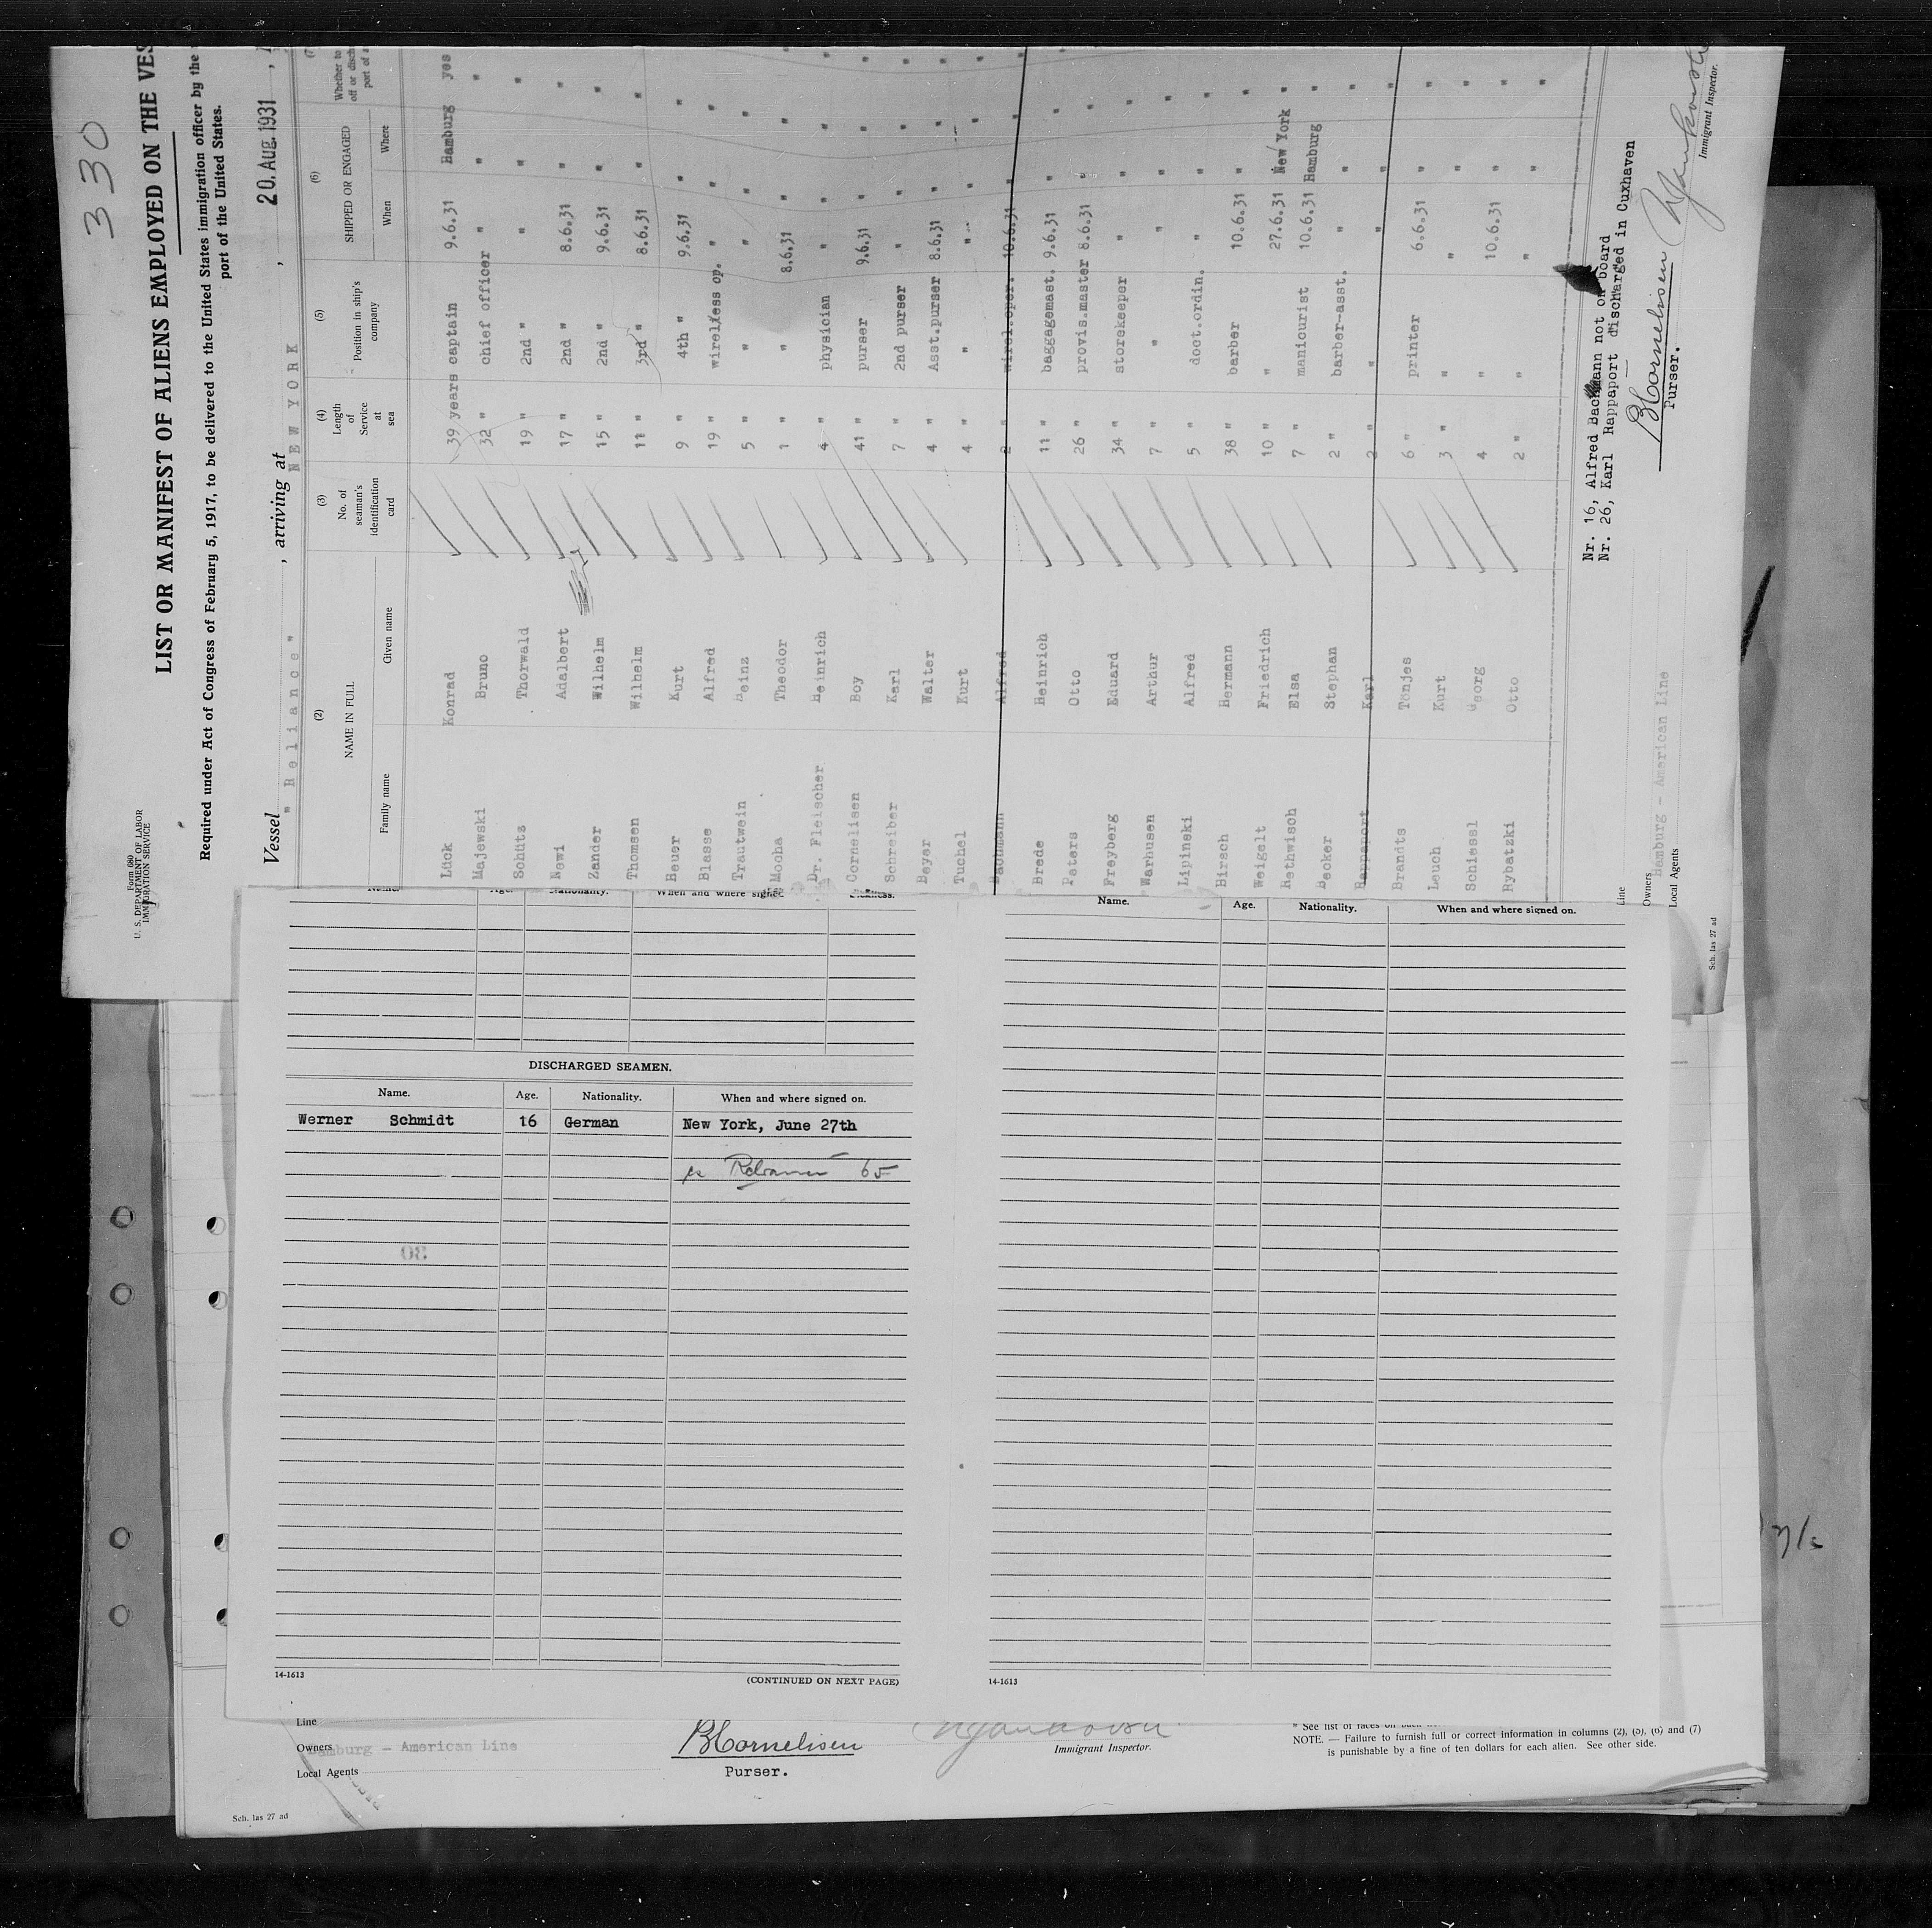 330
Form 680
U. S. DEPARTMENT OF LABOR
IMMIGRATION SERVICE
LIST OR MANIFEST OF ALIENS EMPLOYED ON THE VES
Required under Act of Congress of February 5, 1917, to be delivered to the United States immigration officer by the
port of the United States.
Vessel " Reliance " , arriving at NEW YORK , 20. Aug. 1931 ,
(2) (3) (4) (5) (6)
NAME IN FULL No. of seaman's identification card Length of Service at sea Position in ship's company SHIPPED OR ENGAGED Whether to
off or disch
port of a
Family name Given name When Where
Lück Konrad 39 years captain 9.6.31 Hamburg yes
Majewski Bruno 32 " chief officer " " "
Schütz Thorwald 19 " 2nd " " " "
Newi Adalbert 17 " 2nd " 8.6.31 " "
Zander Wilhelm 15 " 2nd " 9.6.31 " "
Thomsen Wilhelm 11 " 3rd " 8.6.31 " "
Beuer Kurt 9 " 4th " 9.6.31 " "
Blasse Alfred 19 " wireless op. " " "
Trautwein Heinz 5 " " " " "
Mooha Theodor 1 " " 8.6.31 " "
Dr. Fleischer Heinrich 4 " physician " " "
Cornelisen Boy 41 " purser 9.6.31 " "
Schreiber Karl 7 " 2nd purser " " "
Beyer Walter 4 " Asst.purser 8.6.31 " "
Tuchel Kurt 4 " " " " "
Bachmann Alfred 2 " wirel.oper. 10.6.31 " "
Brede Heinrich 11 " baggagemast. 9.6.31 " "
Peters Otto 26 " provis.master 8.6.31 " "
Freyberg Eduard 34 " storekeeper " " "
Warhusen Arthur 7 " " " " "
Lipinski Alfred 5 " doct.ordin. " " "
Hirsch Hermann 38 " barber 10.6.31 " "
Weigelt Friedrich 10 " " 27.6.31 New York "
Rethwisch Elsa 7 " manicurist 10.6.31 Hamburg "
Becker Stephan 2 " barber-asst. " " "
Rappaport Karl 2 " " " " "
Brandts Tönjes 6 " printer 6.6.31 " "
Leuch Kurt 3 " " " " "
Schiessl Georg 4 " 10.6.31 " "
Rybatzki Otto 2 " " " " "
Nr. 16, Alfred Bachmann not on board
Nr. 26, Karl Rappaport discharged in Cuxhaven
BCornelisen
Purser.
Immigrant Inspector.
Line
Owners Hamburg - American Line
Local Agents
Sch. las 27 ad
Name. Age. Nationality. When and where signed Sickness.
DISCHARGED SEAMEN.
Name. Age. Nationality. When and where signed on.
Werner Schmidt 16 German New York, June 27th
65
14-1613
(CONTINUED ON NEXT PAGE)
Name. Age. Nationality. When and where signed on.
14-1613
Line
Owners Hamburg - American Line
Local Agents
BCornelisen
Purser.
Immigrant Inspector.
* See list of races on
NOTE. — Failure to furnish full or correct information in columns (2), (5), (6) and (7)
is punishable by a fine of ten dollars for each alien. See other side.
Sch. las 27 ad